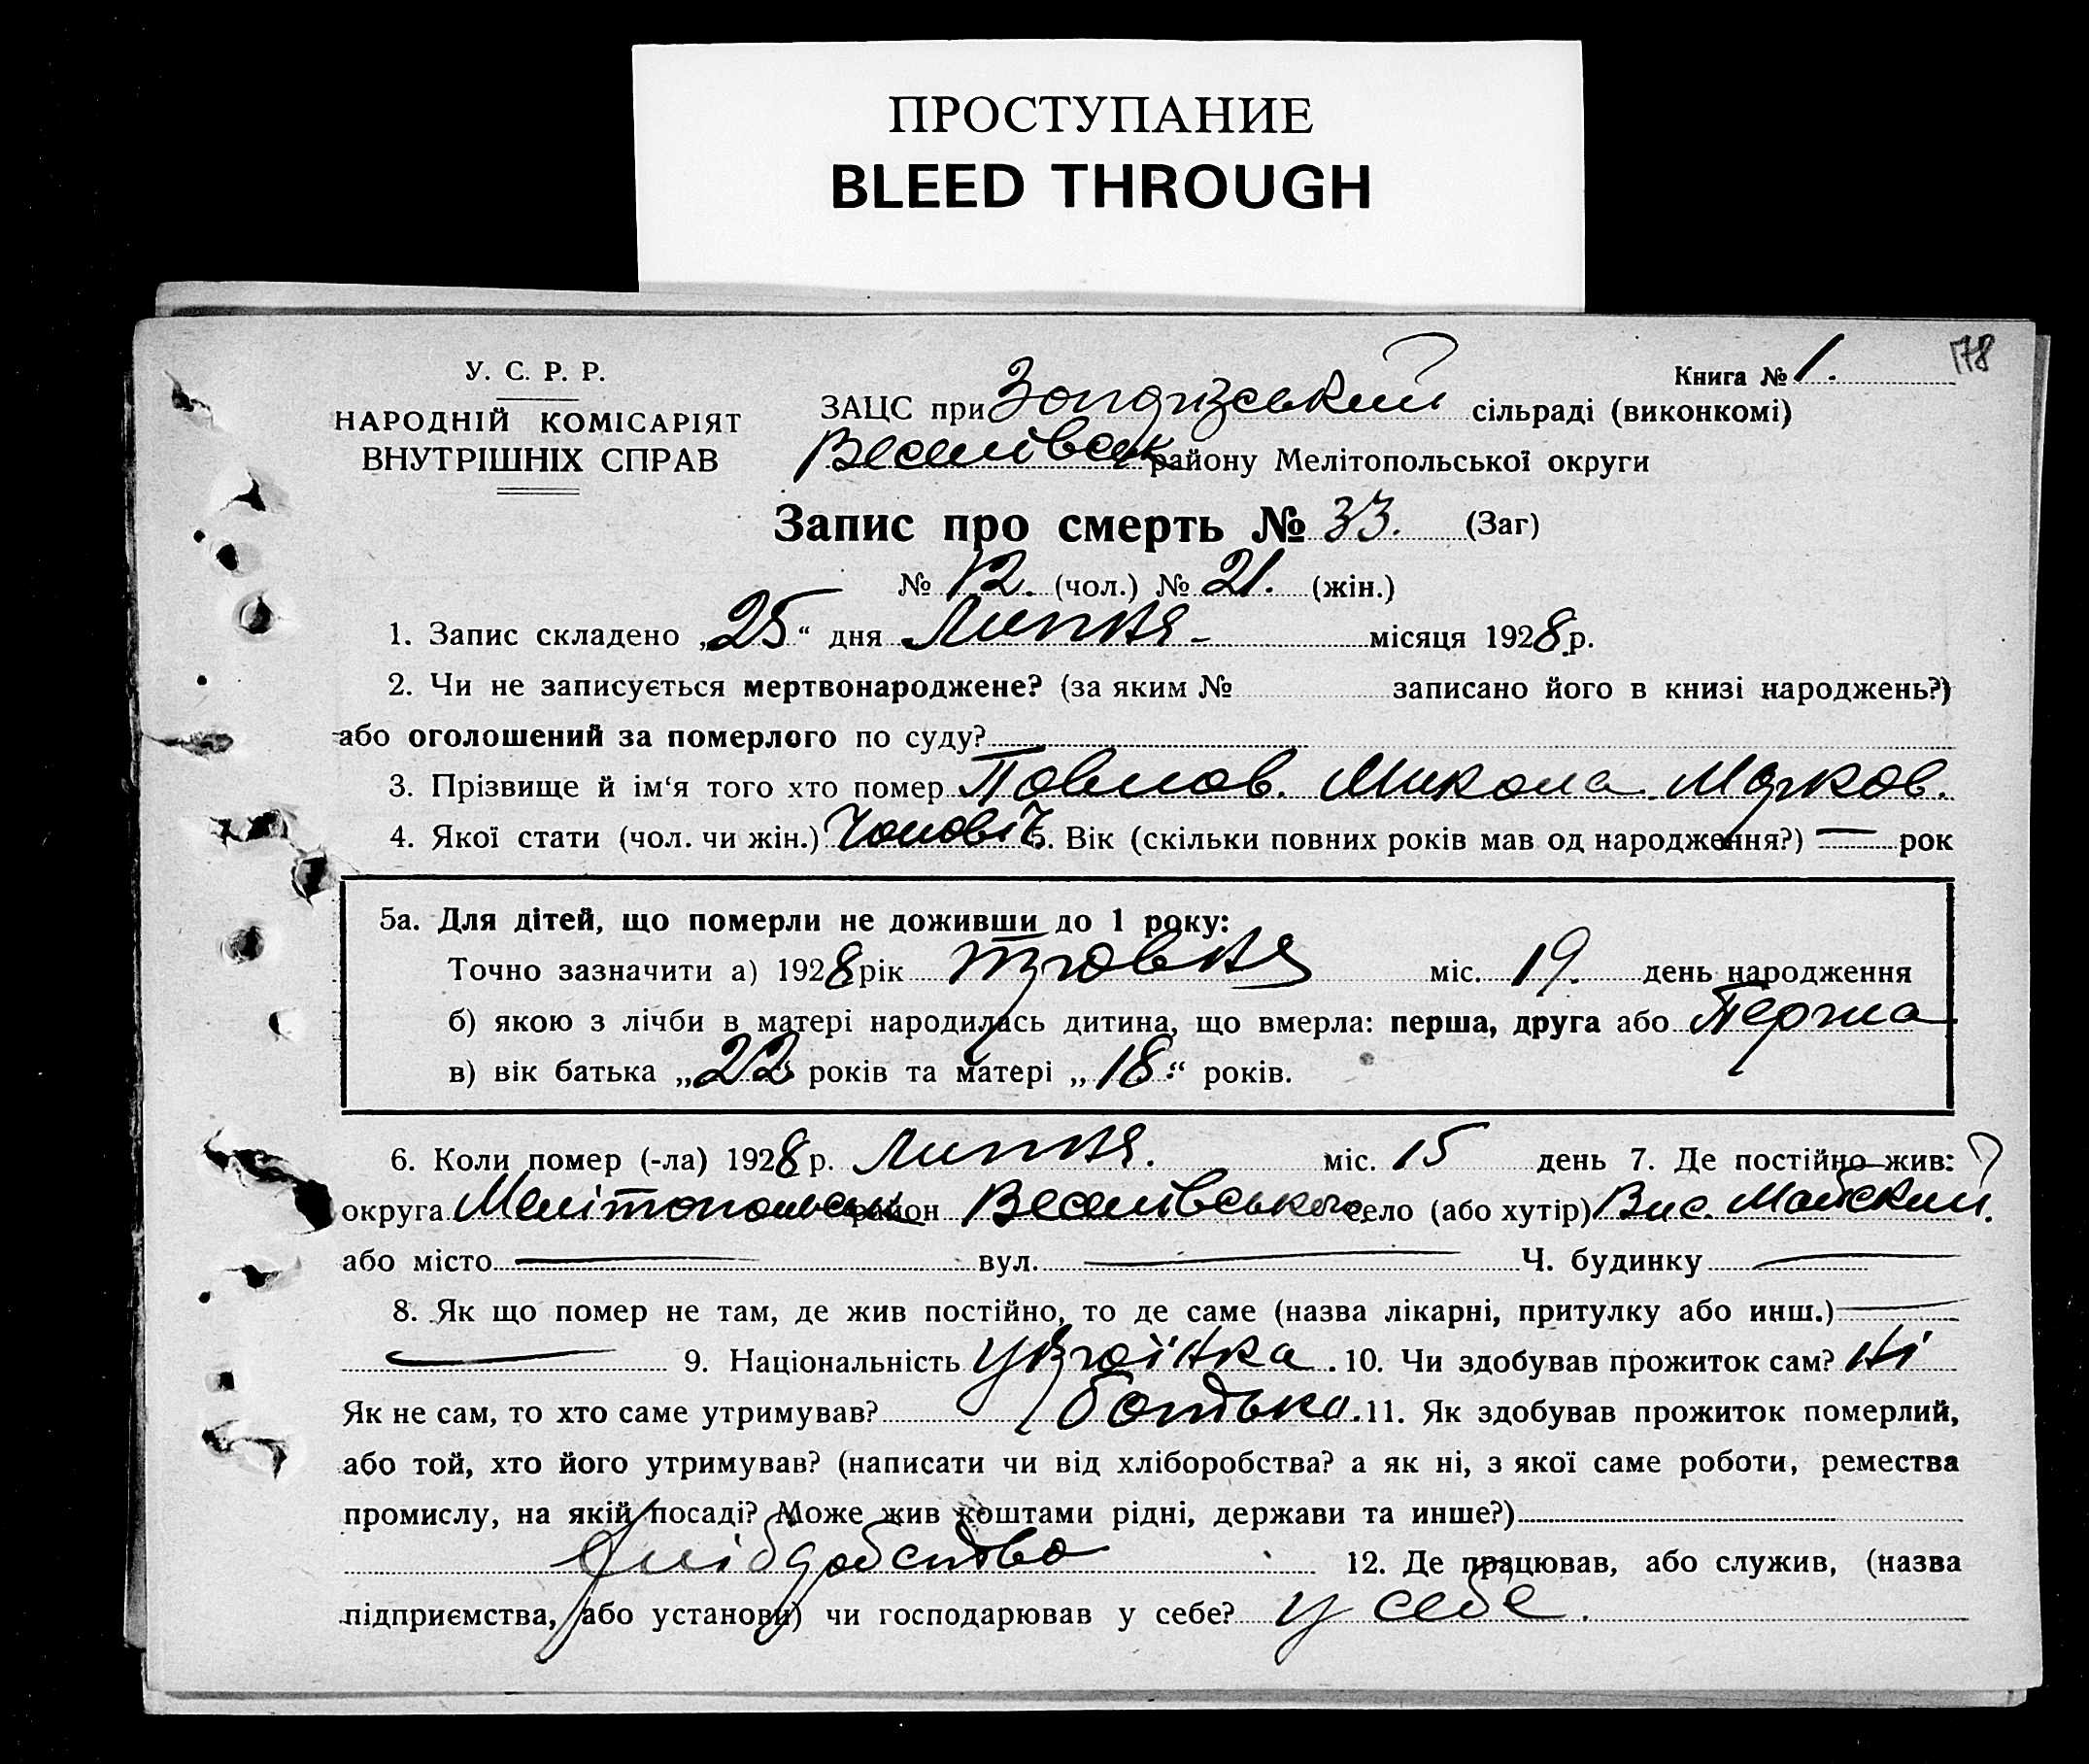 ПРОСТУПАНИЕ
BLEED THROUGH
178
У. С. Р. Р.
НАРОДНІЙ КОМІСАРІЯТ
ВНУТРІШНІХ СПРАВ
Книга № 1.
ЗАЦС при сільраді (виконкомі)
Веселівськ району Мелітопольської округи
Запис про смерть № 33. (Заг)
№ 12. (чол.) № 21. (жін.)
1. Запис складено „25“ дня Липня - місяця 1928 р.
2. Чи не записується мертвонароджене? (за яким № записано його в книзі народжень?)
або оголошений за померлого по суду?
3. Прізвище й ім‘я того хто помер Павлов. Микола Марков.
4. Якої стати (чол. чи жін.) Чоловіч 5. Вік (скільки повних років мав од народження?) — рок
5а. Для дітей, що померли не доживши до 1 року:
Точно зазначити а) 1928 рік травня міс. 19. день народження
б) якою з лічби в матері народилась дитина, що вмерла: перша, друга або Перша
в) вік батька „22 років та матері „18“ років.
6. Коли помер (-ла) 1928 р. Липня. міс. 15 день 7. Де постійно жив:
округа Мелітопольськ район Веселівського село (або хутір) Вис. Майский.
або місто — вул. — Ч. будинку —
8. Як що помер не там, де жив постійно, то де саме (назва лікарні, притулку або инш.) —
— 9. Національність Українка. 10. Чи здобував прожиток сам? Ні
Як не сам, то хто саме утримував? батько. 11. Як здобував прожиток померлий,
або той, хто його утримував? (написати чи від хліборобства? а як ні, з якої саме роботи, ремества
промислу, на якій посаді? Може жив коштами рідні, держави та инше?)
12. Де працював, або служив, (назва
підприємства, або установи) чи господарював у себе? у себе.